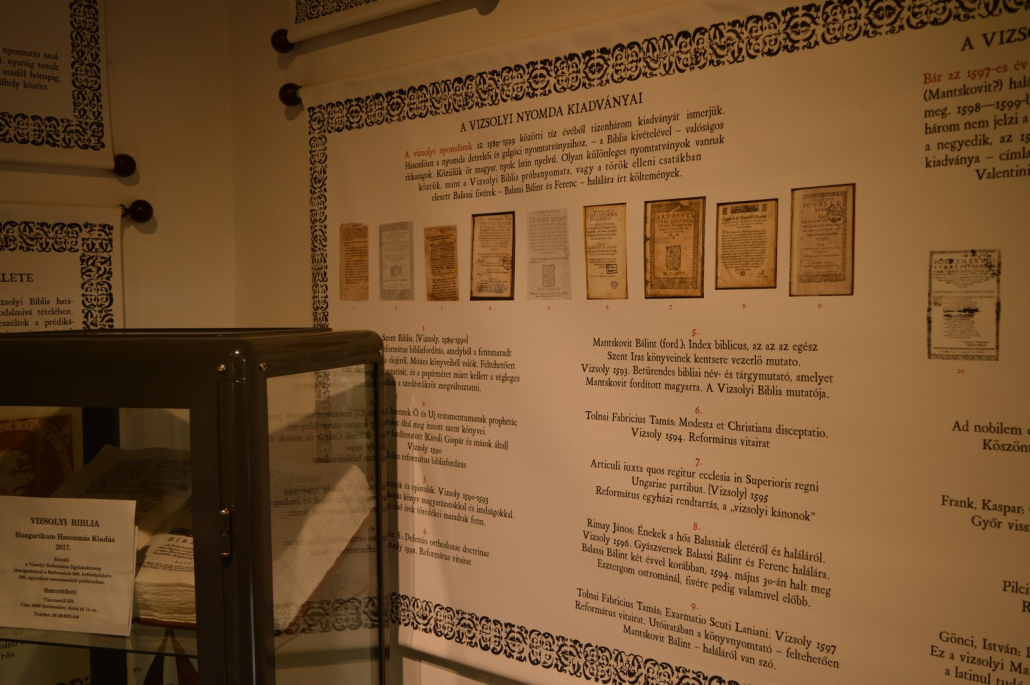 nyomtatás szol-
nyaráig tanult
másfél hónapig,
űhely között
ELETE
zsolyi Biblia hatá-
odalmivá tételében.
eszéltek a prédiká-
A VIZSOLYI NYOMDA KIADVÁNYAI
A vizsolyi nyomdának az 1589-1599 közötti tíz évéből tizenhárom kiadványát ismerjük.
Hasonlóan a nyomda detrekői és galgóci nyomtatványaihoz, – a Biblia kivételével – valóságos
ritkaságok. Közülük öt magyar, nyolc latin nyelvű. Olyan különleges nyomtatványok vannak
köztük, mint a Vizsolyi Biblia próbanyomata, vagy a török elleni csatákban
elesett Balassi fivérek – Balassi Bálint és Ferenc – halálára írt költemények.
1. 2. 3. 4. 5. 6. 7. 8. 9.
1.
Szent Biblia. [Vizsoly, 1589-1590]
református bibliafordítás, amelyből a fennmaradt
elejéről, Mózes könyveiből valók. Feltehetően
és a papírméret miatt kellett a végleges
a szedéstükröt megváltoztatni.
2.
Istennek Ó és Uj testamentumanak prophétác
által meg iratott szent könyvei.
fordíttatott Károli Gáspár és mások által
Vizsoly 1590
református bibliafordítás
3.
és epistolák. Vizsoly 1590-1593
könyv magyarázatokkal és imádságokkal.
első ívek töredékei maradtak fenn.
4.
Defensio orthodoxae doctrinae
Református vitairat
5.
Mantskovit Bálint (ford.): Index biblicus, az az az egész
Szent Iras könyveinek kentsere vezerlö mutato.
Vizsoly 1593. Betűrendes bibliai név- és tárgymutató, amelyet
Mantskovit fordított magyarra. A Vizsolyi Biblia mutatója.
6.
Tolnai Fabricius Tamás: Modesta et Christiana disceptatio.
Vizsoly 1594. Református vitairat
7.
Articuli iuxta quos regitur ecclesia in Superioris regni
Ungariae partibus. [Vizsoly] 1595
Református egyházi rendtartás, a „vizsolyi kánonok”
8.
Rimay János: Énekek a hős Balassiak életéről és haláláról.
Vizsoly 1596. Gyászversek Balassi Bálint és Ferenc halálára.
Balassi Bálint két évvel korábban, 1594. május 30-án halt meg
Esztergom ostrománál, fivére pedig valamivel előbb.
9.
Tolnai Fabricius Tamás: Exarmatio Scuti Laniani. Vizsoly 1597
Református vitairat. Utóiratában a könyvnyomtató – feltehetően
Mantskovit Bálint – haláláról van szó.
A VIZS
Bár az 1597-es év
(Mantskovit?) hal
meg. 1598—1599-
három nem jelzi a
a negyedik, az 15
kiadványa – címla
Valentini
10.
Ad nobilem
Köszönt
Frank, Kaspar:
Győr vissz
Pilc
R
Gönci, István:
Ez a vizsolyi Ma
a latinul tudó
VIZSOLYI BIBLIA
Hungarikum Hasonmás Kiadás
2017.
Készült
a Vizsolyi Református Egyházközség
támogatásával a Reformáció 500. évfordulójára
Megrendelhető